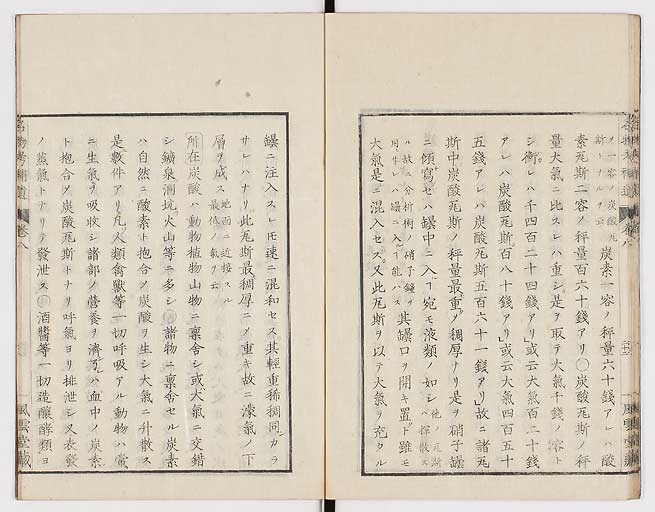 ノ一容ノ炭酸瓦
斯トナルヲ云
炭素一容ノ秤量六十錢アレハ酸
素瓦斯二容ノ秤量百六十錢アリ○炭酸瓦斯ノ秤
量大氣ニ比スレハ重シ是ヲ取テ大氣千錢ノ容ト
シ衡レハ千四百二十四錢アリ」或云大氣百二十錢
アレハ炭酸瓦斯百八十錢アリ」或云大氣四百五十
五錢アレハ炭酸瓦斯五百六十一錢アリ」故ニ諸瓦
斯中炭酸瓦斯ノ秤量最重ノ稠厚ナリ是ヲ硝子罎
ニ傾寫セハ罎中ニ入丁宛モ液類ノ如シ
他ノ瓦斯
ハ揮散ス
ル故ニ分析術ノ硝子鐘ヲ
用ヰレハ罎ニ入丁能ハス
其罎口ヲ開キ置ト雖モ
大氣是ニ混入セス又此瓦斯ヲ以テ大氣ヲ充タル
罎ニ注入スレ𪜈速ニ混和セス其輕重稀稠同カラ
サレハナリ此瓦斯最稠厚ニノ重キ故ニ濠氣ノ下
層ヲ成ス
地面ニ近接スル
最低ノ氣ヲ云
所在炭酸ハ動物植物山物ニ稟舎シ或大氣ニ交錯
シ鑛泉洞坑火山等ニ多シ○諸物ニ稟舎セル炭素
ハ自然ニ酸素ト抱合ノ炭酸ヲ生シ大氣ニ升散ス
是數件アリ凡人類禽獸等一切呼吸アル動物ハ常
ニ生氣ヲ吸收シ諸部ノ營養ヲ濟ノハ血中ノ炭素
ト抱合ノ炭酸瓦斯トナリ呼氣ヨリ排泄シ又衣發
ノ蒸氣トナリテ發泄ス○酒醬等一切造釀酵類ヨ
卷八
風雲堂藏